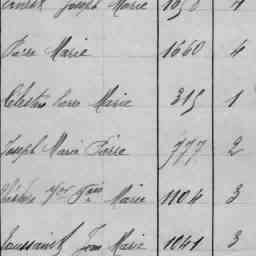 Ernest Joseph Marie 1050 4
Pierre Marie 1660 4
Célestin Pierre Marie 315 1
Joseph Marie Pierre 777 2
Marie 1104 3
Toussaint Jean Marie 1041 3